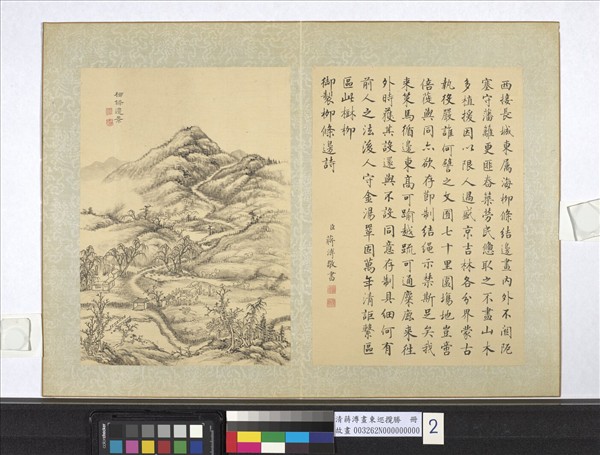 西接長城東屬海柳條結邊畫內外不關阨
塞守藩籬更匪舂築勞民憊取之不盡山木
多植援因以限人過盛京吉林各分界蒙古
執役嚴誰何譬之文囿七十里圍場地豈啻
倍蓰與同亦欲存節制結繩示禁斯足矣我
來策馬循邊東高可踰越疏可通麋鹿來往
外時獲其設還與不設同意存制具細何有
前人之法後人守金湯鞏固萬年清詎繫區
區此樹柳
御製柳條邊詩
臣蔣溥敬書
柳條邊景
清蔣溥畫東巡攬勝 冊
故畫 003262N000000000
2